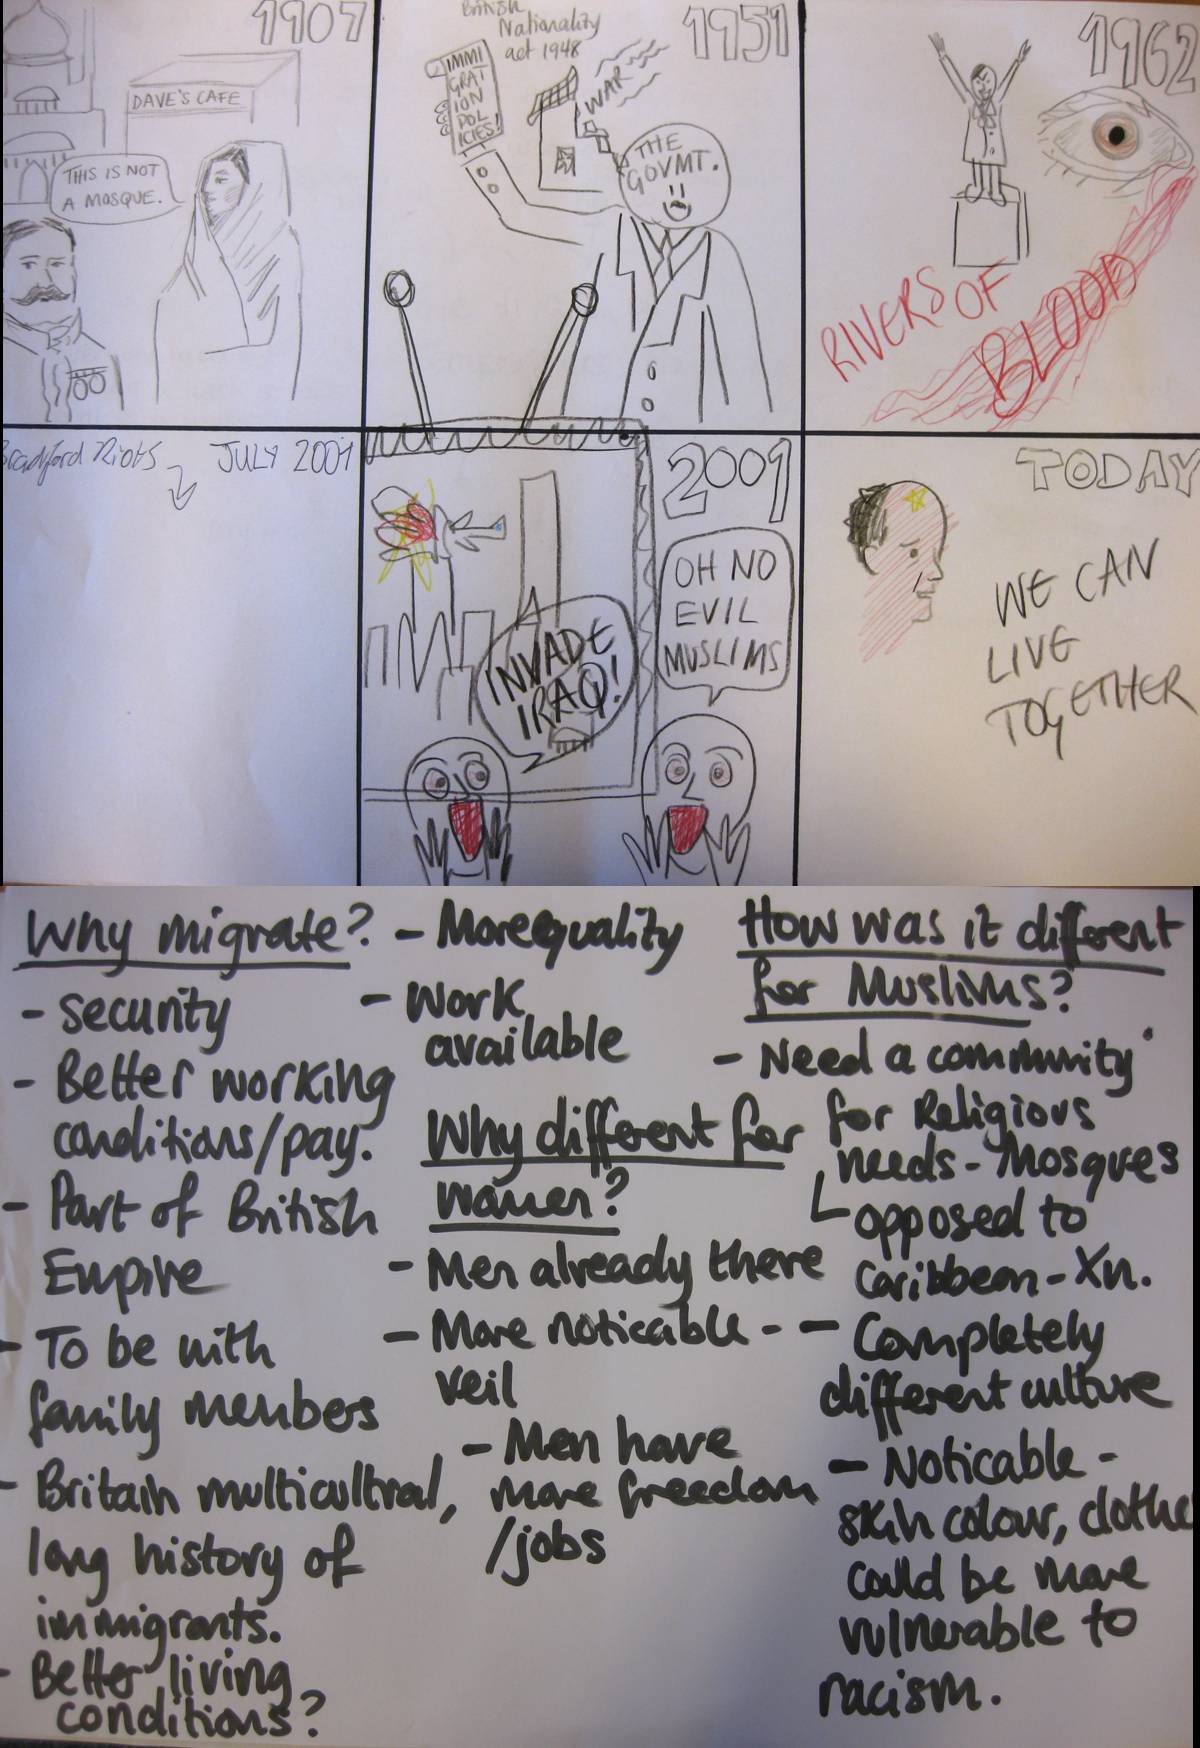 1907
DAVE'S CAFE
THIS IS NOT
A MOSQUE.
British
Nationality
act 1948
1951
IMMI
GRAT
ION
POL
ICIES!
WAR
THE
GOVMT.
1962
RIVERS OF
BLOOD
Bradford Riots
JULY 2001
2001
INVADE
IRAQ!
OH NO
EVIL
MUSLIMS
TODAY
WE CAN
LIVE
TOGETHER
Why migrate?
- security
- Better working
conditions/pay.
- Part of British
Empire
- To be with
family members
- Britain multicultral,
long history of
immigrants.
- Better living
conditions?
- More equality
- Work
available
Why different for
women?
- Men already there
- More noticable -
veil
- Men have
more freedom
/jobs
How was it different
for Muslims?
- Need a community
for Religious
needs - Mosques
opposed to
Caribbean - Xn.
- Completely
different culture
- Noticable -
skin colour, clothe
could be more
vulnerable to
racism.